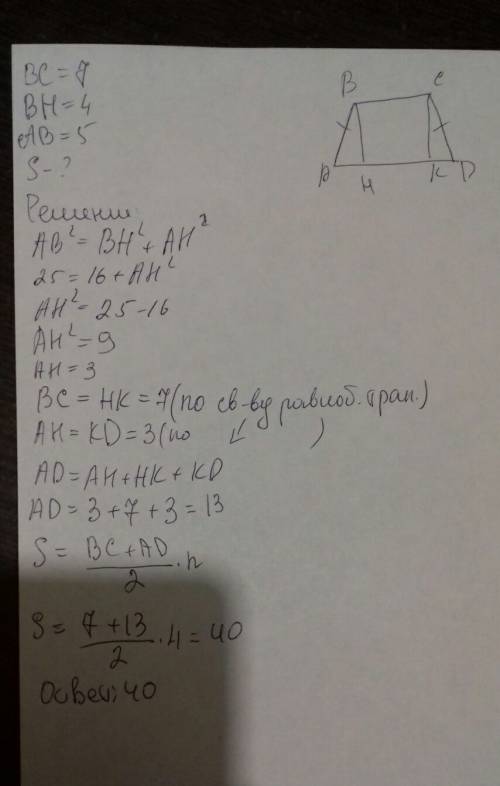 BC = 7
BH = 4
AB = 5
S - ?
Решени:
AB² = BH² + AH²
25 = 16 + AH²
AH² = 25 - 16
AH² = 9
AH = 3
BC = HK = 7 (по св-ву равноб. трап.)
AH = KD = 3 (по ↙ )
AD = AH + HK + KD
AD = 3 + 7 + 3 = 13
S = (BC + AD)/2 · h
S = (7 + 13)/2 · 4 = 40
Ответ: 40
B C
A H K D